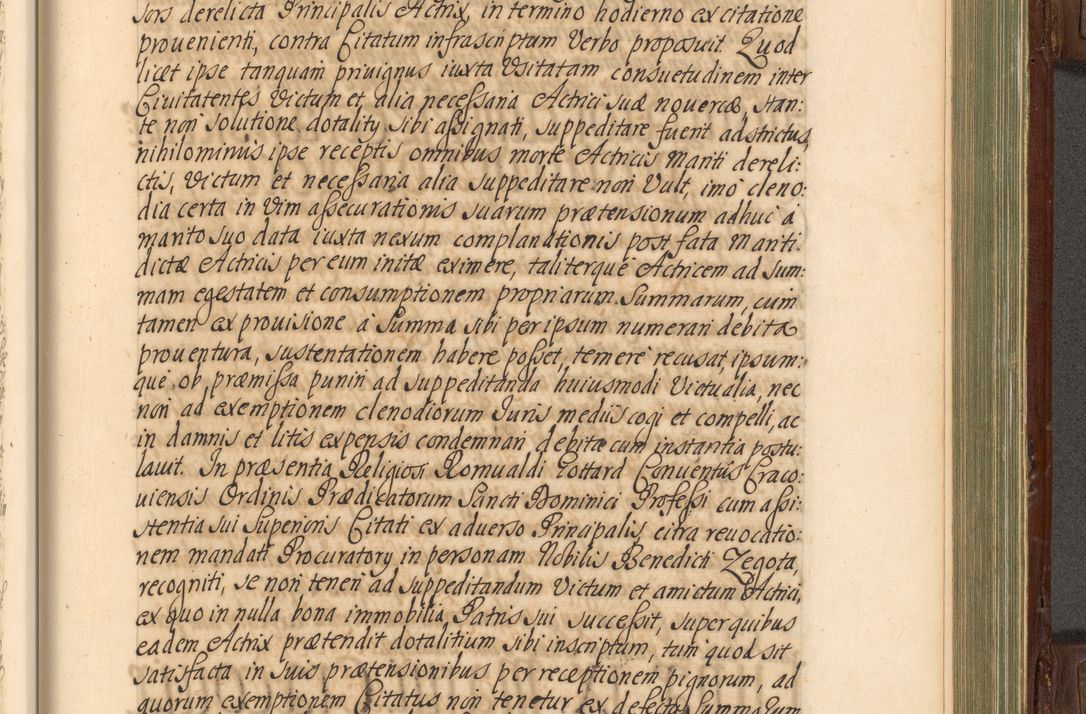 sors derelicta Principalis Actrix, in termino hodierno ex citatione
prouenienti, contra Citatum infrascriptum Verbo proposuit Quod
licet ipse tanquam priuignus iuxta Usitatam consuetudinem inter
Ciuitatentes Victum et alia necessaria Actrici suæ nouercæ, stan:
te non solutione dotality sibi assignati, suppeditare fuerit adstrictus,
nihilominus ipse receptis omnibus morte Actricis mariti dereli:
ctis, Victum et necessaria alia suppeditare non Vult, imo cleno:
dia certa in Vim assecurationis suarum prætensionum adhuc á
marito suo data iuxta nexum complanationis post fata mariti
dictæ Actricis per eum initæ eximere, taliterque Actricem ad sum:
mam egestatem et consumptionem propriarum Summarum, cum
tamen ex prouisione á Summa sibi per ipsum numerari debita
prouentura, sustentationem habere posset, temere recusat, ipsum:
que ob præmissa puniri ad suppeditanda huiusmodi Victualia, nec
non ad exemptionem clenodiorum Iuris mediis cogi et compelli, ac
in damnis et litis expensis condemnari debite cum instantia postu:
lauit. In præsentia Religiosi Romualdi Gottard Conuentus Craco:
uiensis Ordinis Prædicatorum Sancti Dominici Professi cum assi:
stentia sui Superioris Citati ex aduerso Principalis citra reuocatio:
nem mandati Procuratory in personam Nobilis Benedicti Zegota,
recogniti, se non teneri ad suppeditandum Victum et amictum Actrici,
ex quo in nulla bona immobilia Patris sui successit, super quibus
eadem Actrix prætendit dotalitium sibi inscriptum, tum quod sit
satisfacta in suis prætensionibus per receptionem pignorum, ad
quorum exemptionem Citatus non tenetur ex defectu Summarum